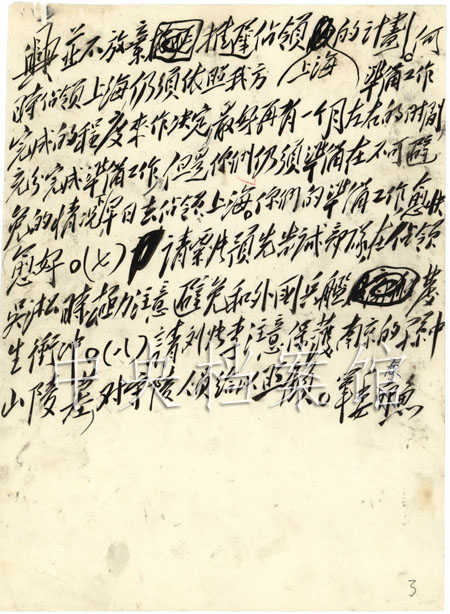 並不放棄推遲佔領上海的計劃。何
時佔領上海仍須依照我方準備工作
完成的程度來作決定最好再有一个月左右的时间
充分完成準備工作但是你們仍須準備在不可避
免的情況早日去佔領上海。你們的準備工作愈快
愈好。(七)請粟 預先告誡部隊在佔領
吳淞時極力注意避免和外國兵艦發
生衝冲。(八)請刘 注意保護南京的孫中
山陵墓对守陵 領給 照顧。軍委
中央档案馆
3